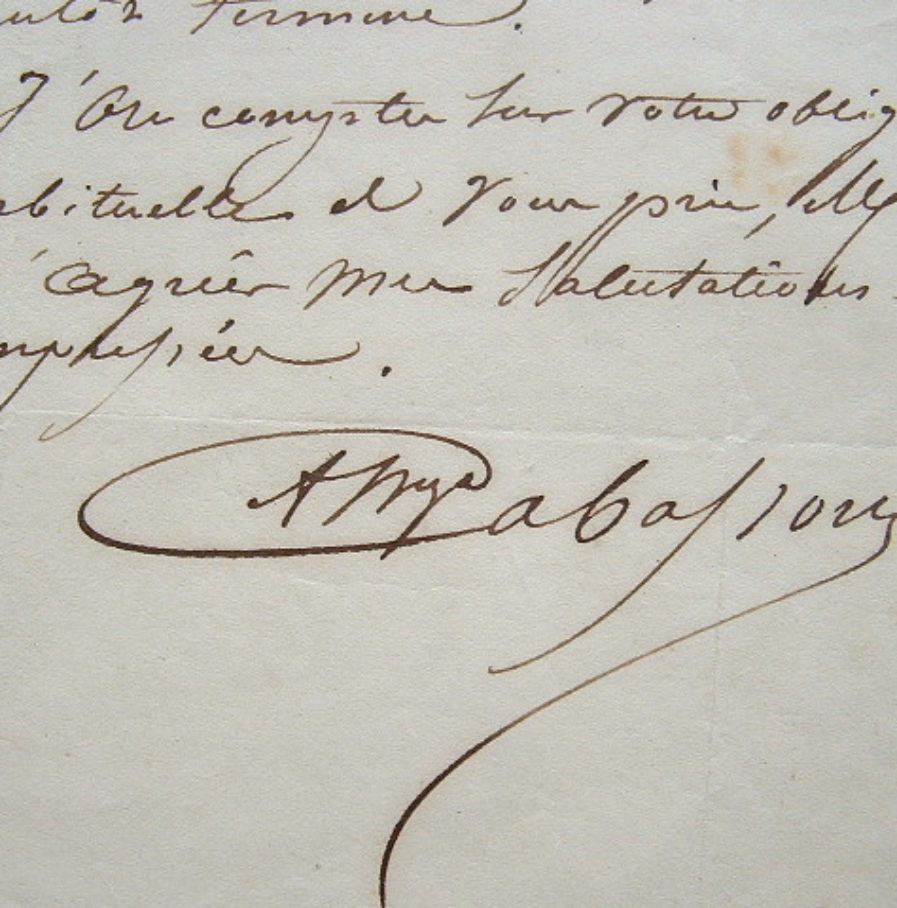 terminé.
J'ose compter sur votre oblig
abituelle et vous prie, M
d'agréer mes salutations
mpressées.